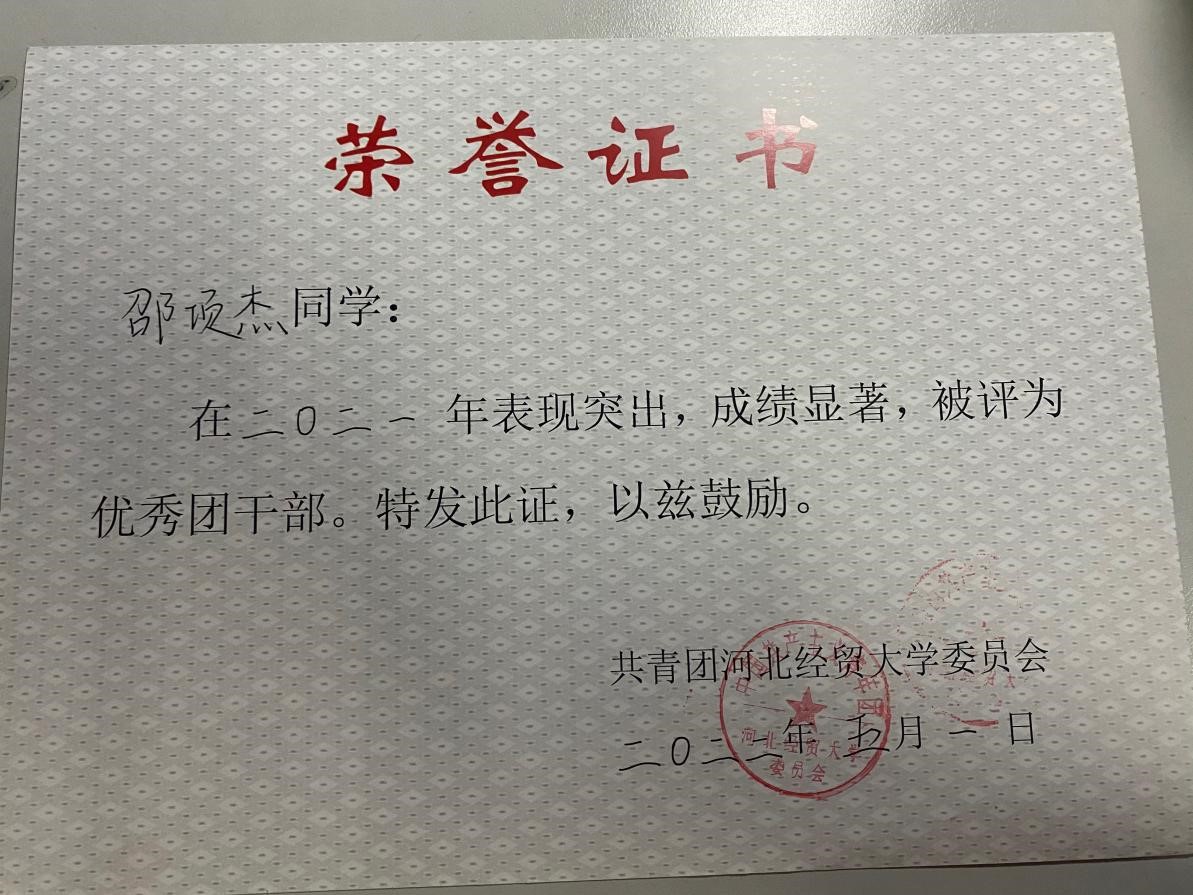 荣誉证书
邵项杰同学：
在二〇二一 年表现突出，成绩显著，被评为
优秀团干部。特发此证，以兹鼓励。
共青团河北经贸大学委员会
二〇二二年 五月 一 日
中国共产主义青年团
河北经贸大学
委员会